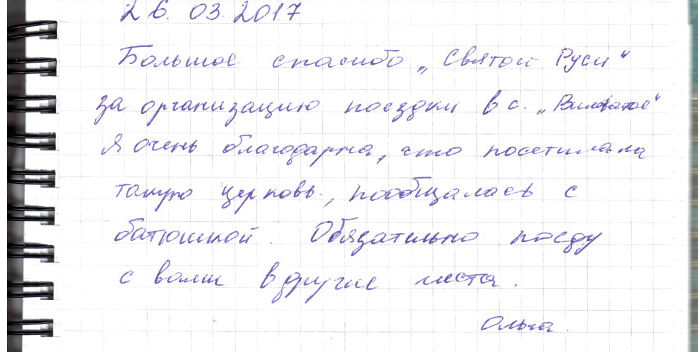 26.03.2017
Большое спасибо „Святой Руси“
за организацию поездки в с.
Я очень благодарна, что посетила
такую церковь, пообщалась с
батюшкой. Обязательно поеду
с вами в другие места.
Ольга.